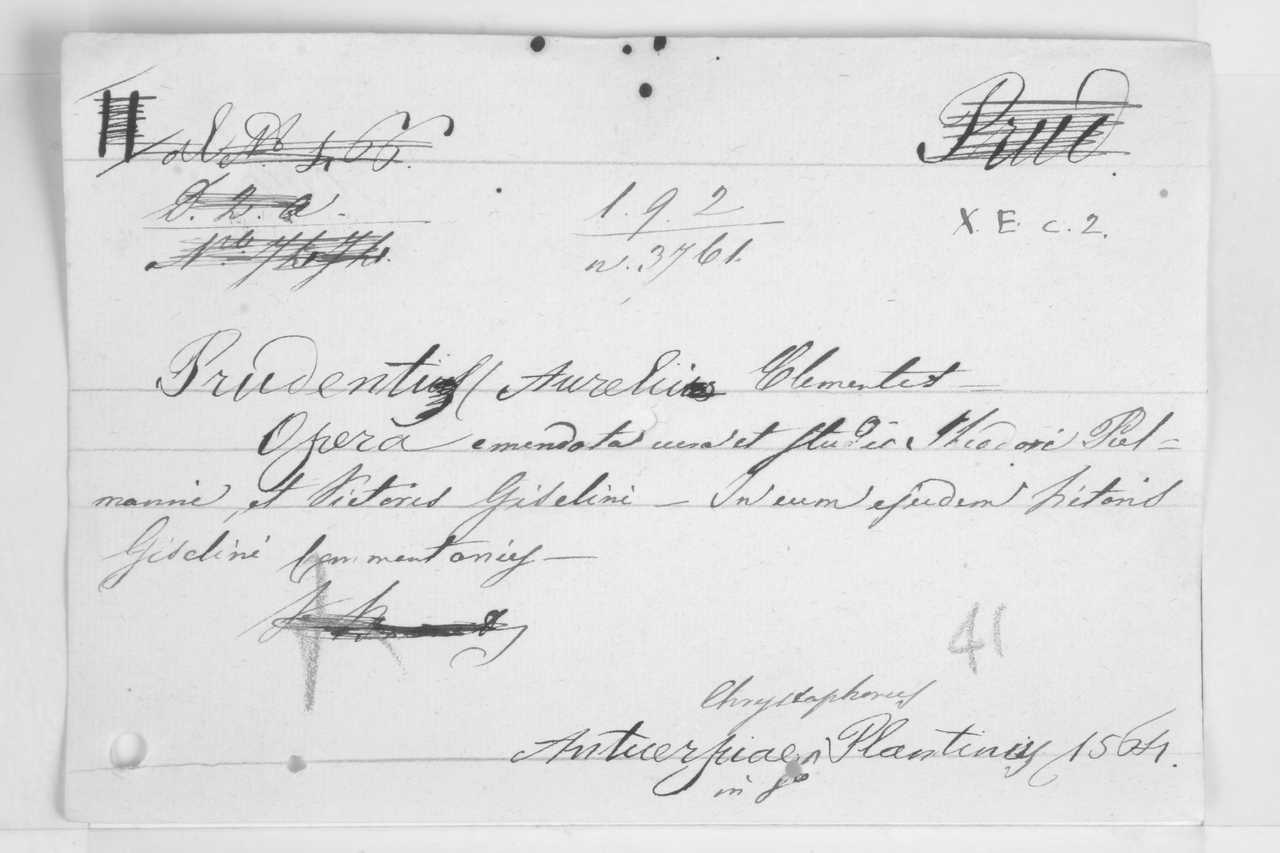 Prud
1. 9. 2
X. E. c. 2.
n. 3761.
Prudentius (Aurelius Clementis —
Opera emendata cura et studio Theodori Pul-
manni, et Victoris Giselini — In eum ejusdem Victoris
Giselini Commentarius —
41
Chrystophorus
Antuerpiae, Plantinus 1564.
in 8º